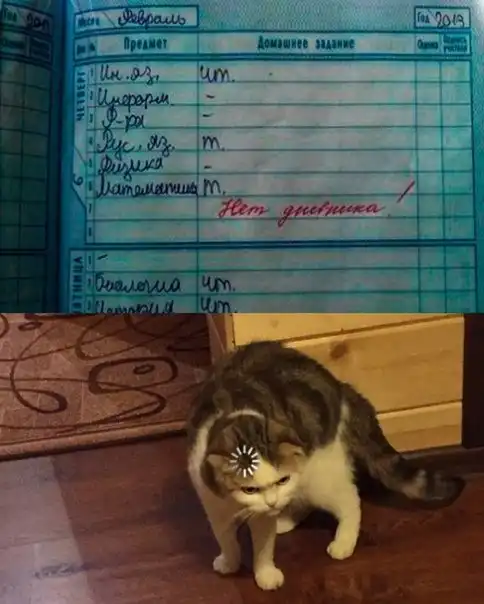 Месяц Февраль Год 2019
Дни № Предмет Домашнее задание Оценка Подпись учителя
ЧЕТВЕРГ
6
1 Ин. яз. чт.
2 Информ. -
3 Ф-ра -
4 Рус. яз. т.
5 Физика -
6 Математика т.
7 Нет дневника!
8
ПЯТНИЦА
1 -
2 Биология чт.
3 История чт.